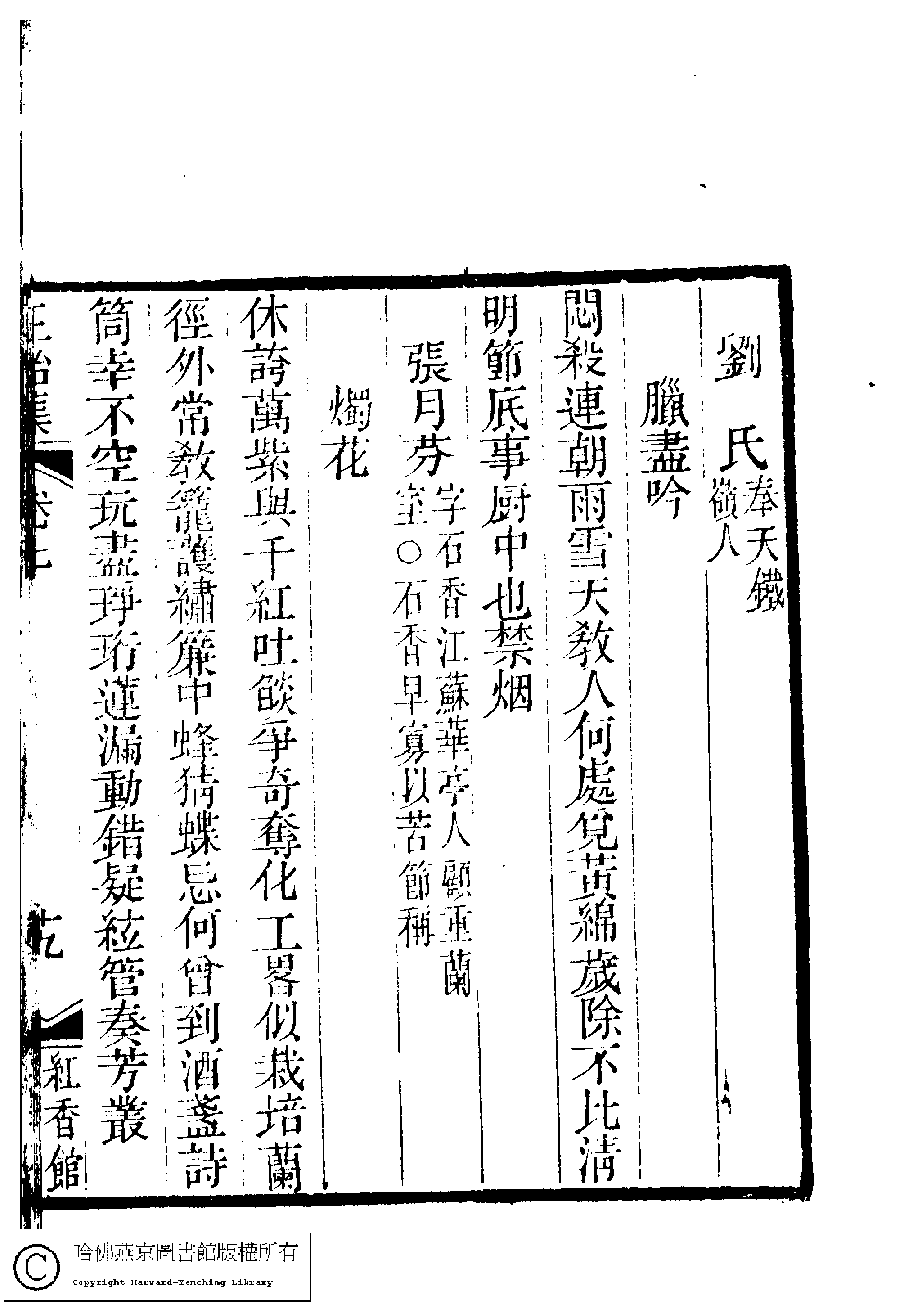 劉　氏奉天鐵
嶺人
臘盡吟
悶殺連朝雨雪天教人何處覓黃綿歲除不比清
明節底事厨中也禁烟
張月芬字石香江蘇華亭人顧重蘭
室○石香早寡以苦節稱
燭花
休誇萬紫與千紅吐燄爭奇奪化工畧似栽培蘭
徑外常教籠護繡簾中蜂猜蝶忌何曾到酒盞詩
筒幸不空玩盡琤珩蓮漏動錯疑絃管奏芳叢
正始集
卷
乾
紅香館
哈佛燕京圖書館版權所有
Copyright Harvard-Yenching Library